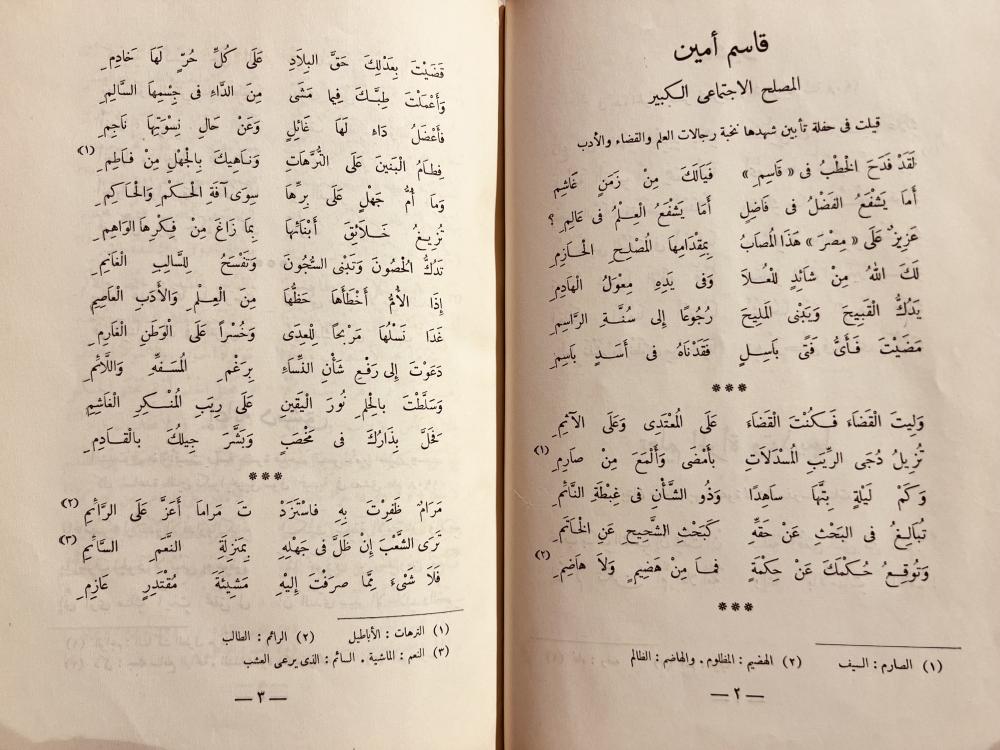 قاسم أمين
المصلح الاجتماعى الكبير
قيلت فى حفلة تأبين شهدها نخبة رجالات العلم والقضاء والأدب
لَقَدْ فَدَحَ الْخَطْبُ فى « قَاسِمِ » فَيَالَكَ مِنْ زَمَنٍ غَاشِمِ
أَمَا يَشْفَعُ الفَضْلُ فى فَاضِلٍ أَمَا يَشْفَعُ الْعِلْمُ فى عَالِمِ ؟
عَزِيزٌ عَلَى « مِصْرَ » هَذَا المُصَابُ بِمِقْدَامِهَا المُصْلِحِ الْحَازِمِ
لَكَ اللهُ مِنْ شَائِدٍ لِلْعُلاَ وَفى يَدِهِ مِعْوَلُ الهَادِمِ
يَدُكُّ الْقَبِيحَ وَيَبْنِى المَلِيحَ رُجُوعًا إِلى سُنَّةِ الرَّاسِمِ
مَضَيْتَ فَأَىُّ فَتًى بَاسِلٍ فَقَدْنَاهُ فى أَسَدٍ بَاسِمِ
***
وَلِيتَ الْقَضَاءَ فَكُنْتَ الْقَضَاءَ عَلَى المُعْتَدِى وَعَلَى الآثِمِ
تُزِيلُ دُجَى الرِّيَبِ المُسْدَلَاتِ بِأَمْضَى وَأَلْمَعَ مِنْ صَارِمِ (١)
وَكَمْ لَيْلَةٍ بِتَّهَا سَاهِدًا وَذُو الشَّأْنِ فى غِبْطَةِ النَّائِمِ
تُبَالِغُ فى البَحْثِ عَنْ حَقِّهِ كَبَحْثِ الشَّحِيحِ عَنِ الْخَاتَمِ
وَتُوقِعُ حُكْمَكَ عَنْ حِكْمَةٍ فمَا مِنْ هَضِيمٍ وَلاَ هَاضِمِ (٢)
***
(١) الصارم : السيف (٢) الهضيم : المظلوم . والهاضم : الظالم
— ٢ —
قَضَيْتَ بِعَدْلِكَ حَقَّ البِلَادِ عَلَى كُلِّ حُرٍّ لَهَا خَادِمِ
وَأَعْمَلْتَ طِبَّكَ فِيما مَشَى مِنَ الدَّاءِ فى جِسْمِهَا السَّالِمِ
فَأَعْضَلُ دَاءٍ لَهَا غَائِلٍ وَعَنْ حَالِ نِسْوَتِهَا نَاجِمِ
فِطَامُ الْبَنِينَ عَلَى التُّرَّهَاتِ وَنَاهِيكَ بِالْجَهْلِ مِنْ فَاطِمِ (١)
وَمَا أُمُّ جَهْلٍ عَلَى بِرِّهَا سِوَى آفَةِ الْحُكْمِ وَالْحَاكِمِ
تُزِيغُ خَلَائِقَ أَبْنَائِهَا بِمَا زَاغَ مِنْ فِكْرِهَا الوَاهِمِ
تَدُكُّ الْحُصُونَ وَتَبْنِى السُّجُونَ وَتَفْسَحُ لِلسَّالِبِ الْغَانِمِ
إِذَا الأُمُّ أَخْطَأَهَا حَظُّهَا مِنَ الْعِلْمِ وَالأَدَبِ الْعَاصِمِ
غَدَا نَسْلُهَا مَرْبَحًا لِلْعِدَى وَخُسْراً عَلَى الْوَطَنِ الْغَارِمِ
دَعَوْتَ إِلى رَفْعِ شَأْنِ النِّسَاءِ بِرَغْمِ المُسَفِّهِ وَاللَّائِمِ
وَسَلَّطْتَ بِالْحِلْمِ نُورَ الْيَقِينِ عَلَى رِيَبِ المُنْكِرِ الْغَاشِمِ
فَحَلَّ بِذَارُكَ فى مَخْصَبٍ وَبَشَّرَ جِيلُكَ بِالْقَادِمِ
***
مَرَامٌ ظَفِرْتَ بِهِ فاسْتَزَدْ تَ مَرَاما أَعَزَّ عَلَى الرَّائِمِ (٢)
تَرَى الشَّعْبَ إِنْ ظَلَّ فى جَهْلِهِ بِمَنْزِلَةِ النَّعَمِ السَّائِمِ (٣)
فَلَا شَىْءَ مِمَّا صرَفْتَ إِلَيْهِ مَشِيئَةَ مُقْتَدِرٍ عَازِمِ
(١) الترهات : الأباطيل (٢) الرائم : الطالب
(٣) النعم : الماشية . السائم : الذى يرعى العشب
— ٣ —